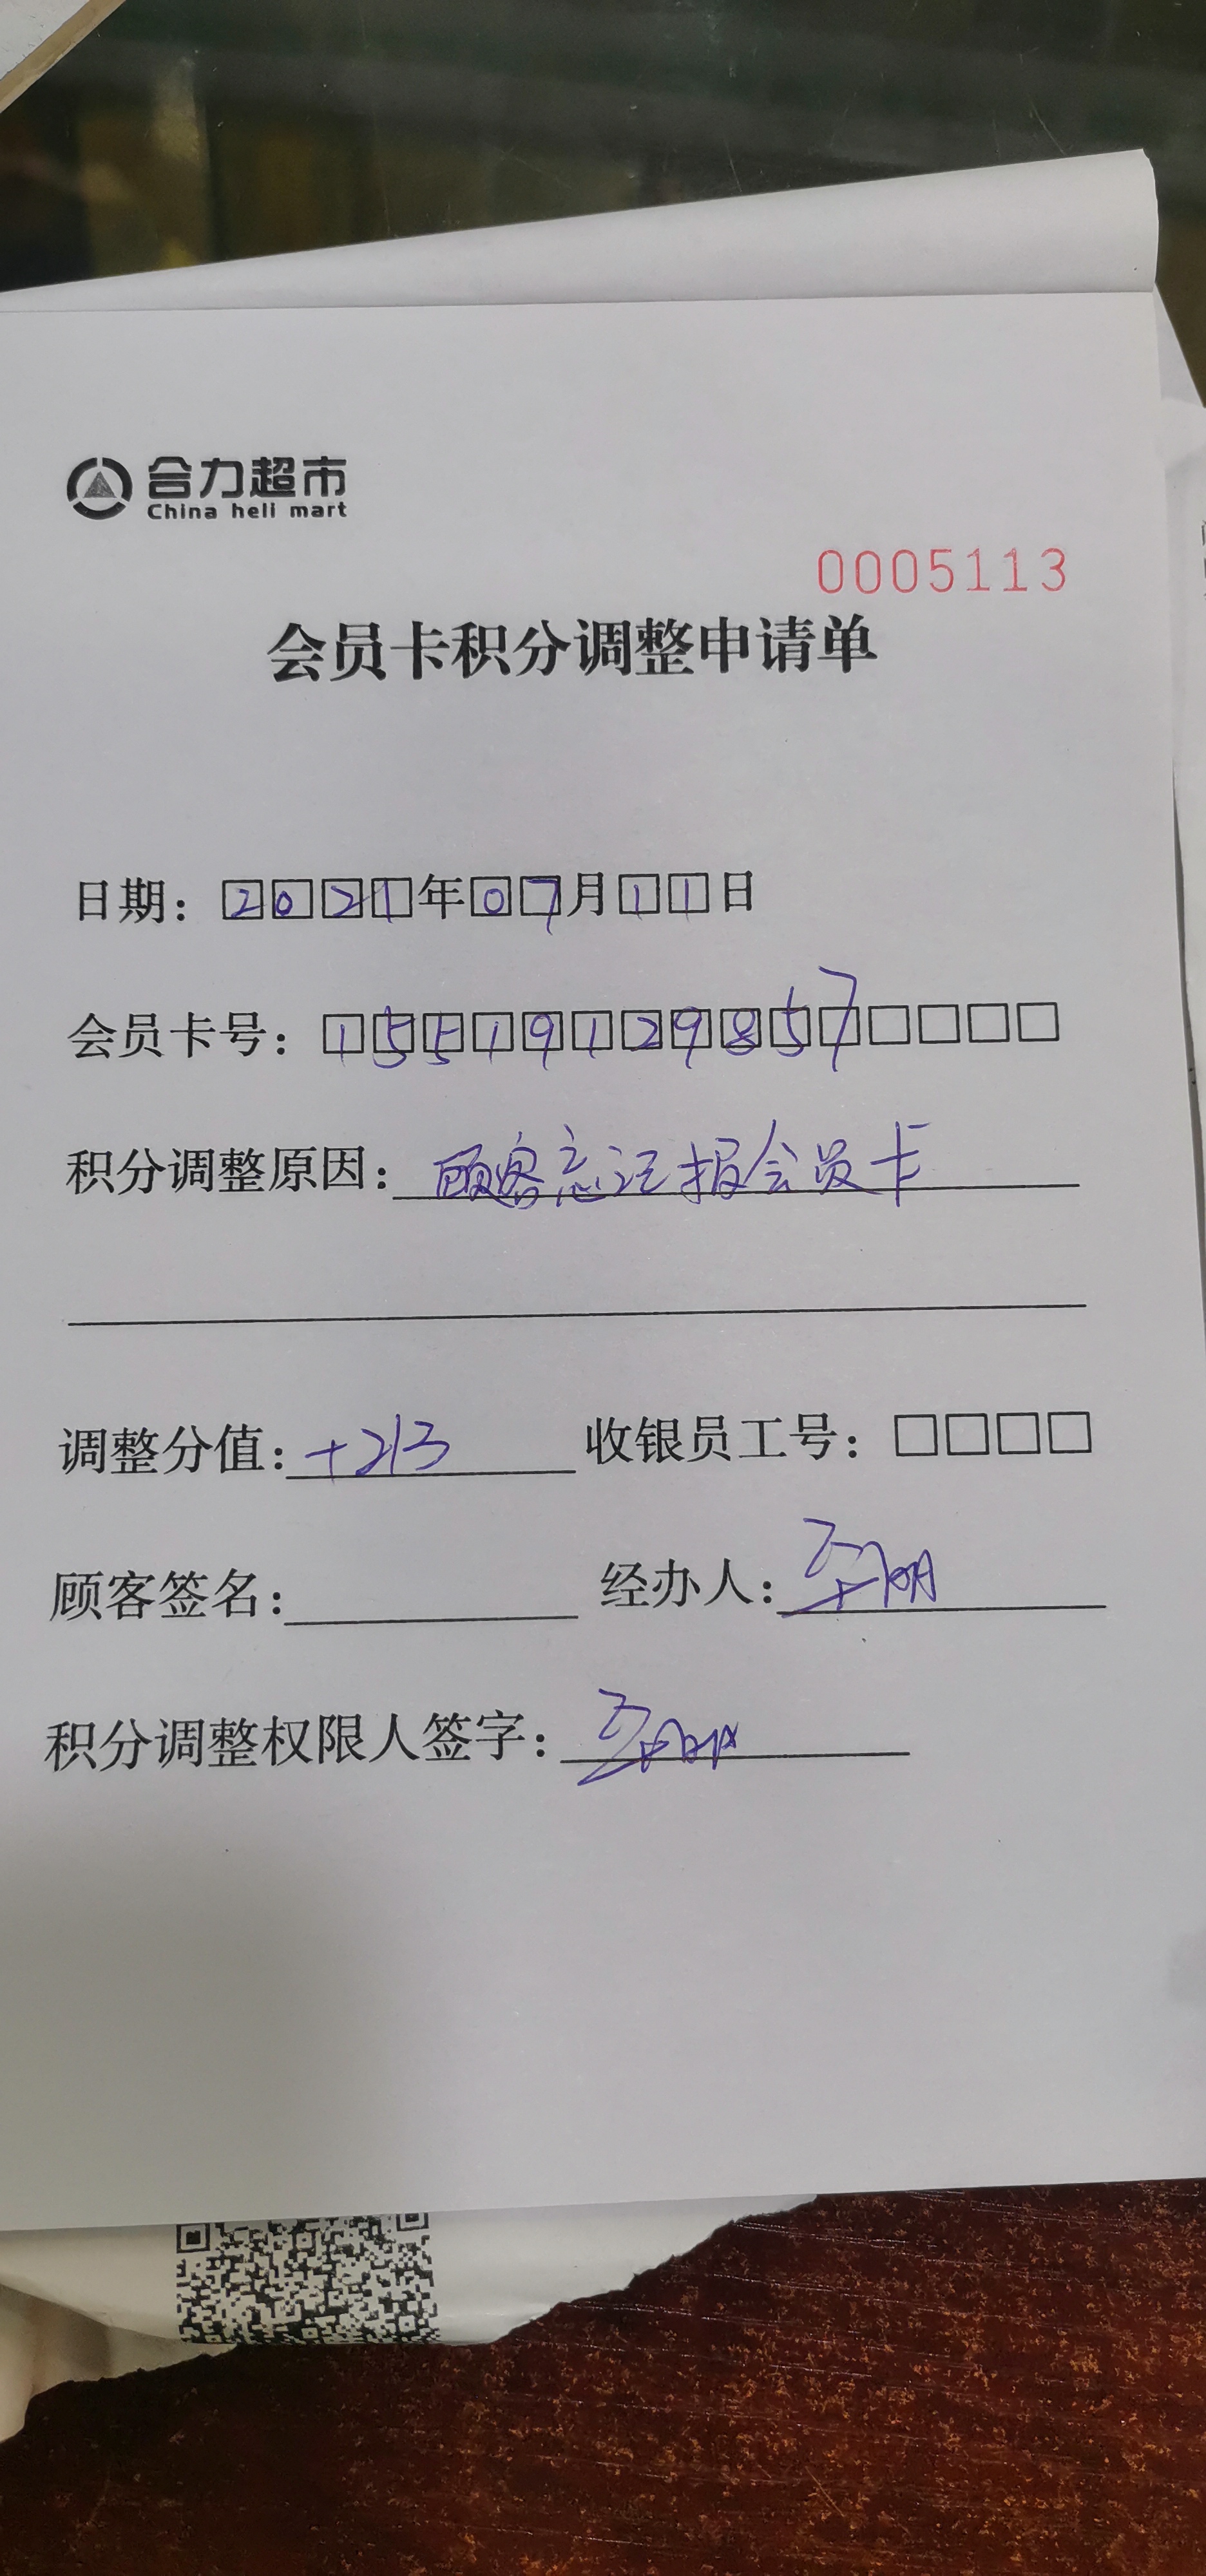 合力超市
China heli mart
0005113
会员卡积分调整申请单
日期：2021年07月11日
会员卡号：15519129857
积分调整原因：顾客忘记报会员卡
调整分值：+213 收银员工号：
顾客签名： 经办人：
积分调整权限人签字：